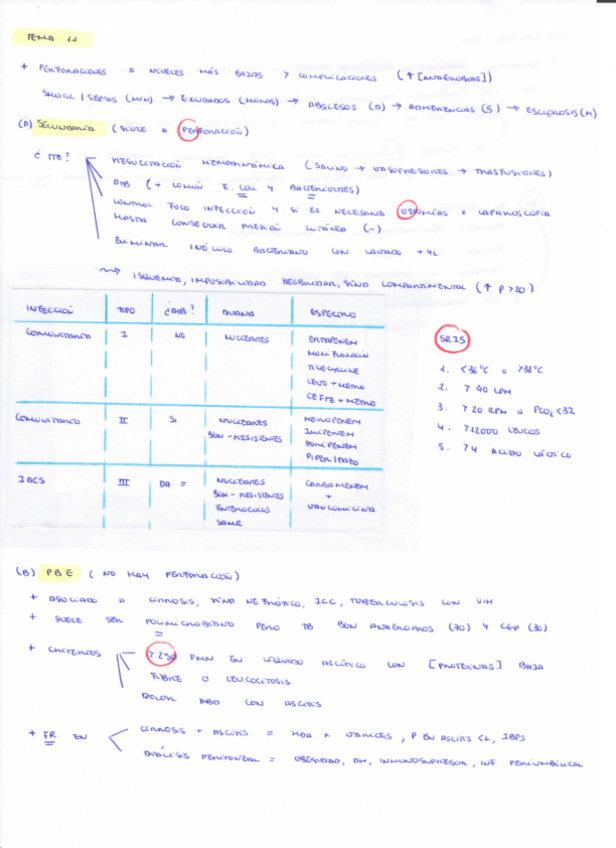 TEMA 21
+ PERFORACIONES A NIVELES MÁS BAJOS > COMPLICACIONES (↑ [ANAEROBIOS])
SHOCK / SEPSIS (MIN) → EXUDADOS (HORAS) → ABSCESOS (D) → ADHERENCIAS (S) → ESCLEROSIS (M)
(A) SECUNDARIA (SUELE A PERFORACIÓN)
¿ TTO? RESUCITACIÓN HEMODINÁMICA (SALINO → VASOPRESORES → TRASFUSIONES)
ATB (+ COMÚN E. COLI Y BACTEROIDES)
CONTROL FOCO INFECCIÓN Y SI ES NECESARIO OSTOMÍAS x LAPAROSCOPIA
HASTA CONSEGUIR PRESIÓN CUTÁNEA (-)
ELIMINAR INÓCULO BACTERIANO CON LAVADO +4L
⇝ ISQUEMIA, IMPOSIBILIDAD DESBRIDAR, SÍND COMPARTIMENTAL (↑ P >20)
INFECCIÓN TIPO ¿ATB? DIANA ESPECTRO
COMUNITARIA I NO NUCLEARES ERTAPENEM
MOXIFLOXACIN
TIGECYCLINE
LEVO + METRO
CEFTZ + METRO
COMUNITARIO II SI NUCLEARES MEROPENEM
BGN - RESISTENTES IMIPENEM
DORIPENEM
PIPERITAZO
IACS III DA = NUCLEARES CARBAPENEM
BGN - RESISTENTES +
ENTEROCOCOS VANCOMICINA
SAMR
SRIS
1. <36°C o >38°C
2. > 90 LPM
3. > 20 RPM o PCO2 <32
4. >12000 LEUCOS
5. >4 ÁCIDO LÁCTICO
(B) PBE (NO HAY PERFORACIÓN)
+ ASOCIADO A CIRROSIS, SÍND NEFRÓTICO, ICC, TUBERCULOSIS CON VIH
+ SUELE SER POLIMICROBIANO PERO TB BGN ANAEROBIOS (70) Y CGP (30)
+ CRITERIOS > 250 PMN EN LÍQUIDO ASCÍTICO CON [PROTEINAS] BAJA
FIEBRE O LEUCOCITOSIS
DOLOR ABD CON ASCITIS
+ FR EN CIRROSIS + ASCITIS = HDA x VARICES, P EN ASCITIS <1, IBPS
DIÁLISIS PERITONEAL = OBESIDAD, DM, INMUNOSUPRESOR, INF PERIUMBILICAL